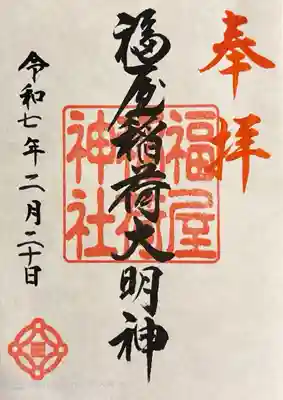 奉拝
福屋稲荷大明神
福屋
稲荷
神社
令和七年二月二十日